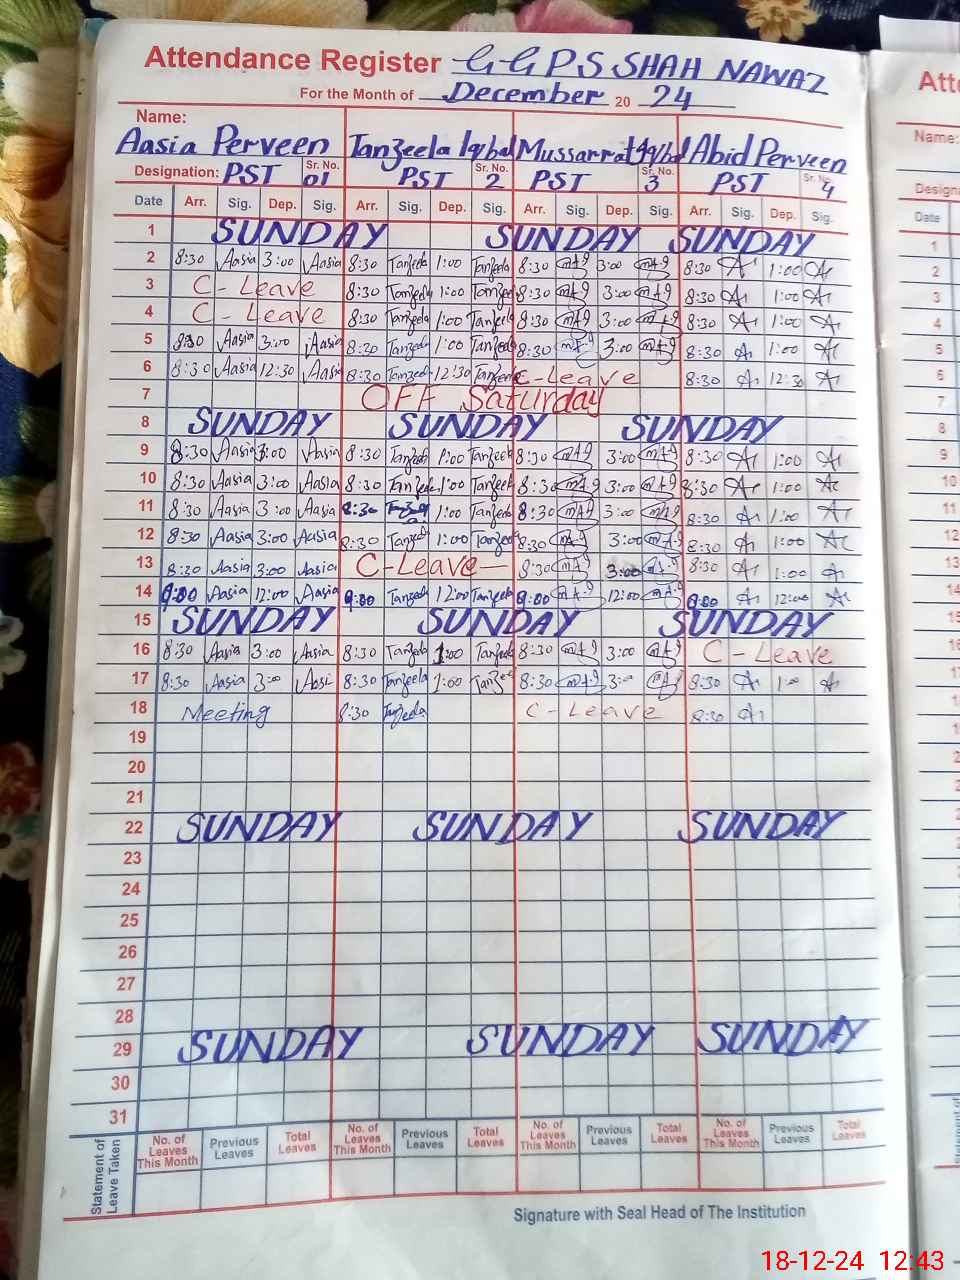 Attendance Register GGPS SHAH NAWAZ
For the Month of December 20 24
Name:
Aasia Perveen Tanzeela Iqbal Mussarrat Iqbal Abid Perveen
Designation: PST Sr. No. 01 PST Sr. No. 2 PST Sr. No. 3 PST Sr. No. 4
Date Arr. Sig. Dep. Sig. Arr. Sig. Dep. Sig. Arr. Sig. Dep. Sig. Arr. Sig. Dep. Sig.
1 SUNDAY SUNDAY SUNDAY
2 8:30 Aasia 3:00 Aasia 8:30 Tanzeela 1:00 Tanzeela 8:30 3:00 8:30 1:00
3 C-Leave 8:30 Tanzeela 1:00 Tanzeela 8:30 3:00 8:30 1:00
4 C-Leave 8:30 Tanzeela 1:00 Tanzeela 8:30 3:00 8:30 1:00
5 8:30 Aasia 3:00 Aasia 8:30 Tanzeela 1:00 Tanzeela 8:30 3:00 8:30 1:00
6 8:30 Aasia 12:30 Aasia 8:30 Tanzeela 12:30 Tanzeela C-Leave 8:30 12:30
7 OFF Saturday
8 SUNDAY SUNDAY SUNDAY
9 8:30 Aasia 3:00 Aasia 8:30 Tanzeela 1:00 Tanzeela 8:30 3:00 8:30 1:00
10 8:30 Aasia 3:00 Aasia 8:30 Tanzeela 1:00 Tanzeela 8:30 3:00 8:30 1:00
11 8:30 Aasia 3:00 Aasia 8:30 1:00 Tanzeela 8:30 3:00 8:30 1:00
12 8:30 Aasia 3:00 Aasia 8:30 Tanzeela 1:00 Tanzeela 8:30 3:00 8:30 1:00
13 8:30 Aasia 3:00 Aasia C-Leave 8:30 3:00 8:30 1:00
14 9:00 Aasia 12:00 Aasia 9:00 Tanzeela 12:00 Tanzeela 9:00 12:00 9:00 12:00
15 SUNDAY SUNDAY SUNDAY
16 8:30 Aasia 3:00 Aasia 8:30 Tanzeela 1:00 Tanzeela 8:30 3:00 C-Leave
17 8:30 Aasia 3:00 Aasi 8:30 Tanzeela 1:00 Tanzeela 8:30 3:00 8:30 1:00
18 Meeting 8:30 Tanzeela C-Leave 8:30
19
20
21
22 SUNDAY SUNDAY SUNDAY
23
24
25
26
27
28
29 SUNDAY SUNDAY SUNDAY
30
31
Statement of Leave Taken
No. of Leaves This Month Previous Leaves Total Leaves No. of Leaves This Month Previous Leaves Total Leaves No. of Leaves This Month Previous Leaves Total Leaves No. of Leaves This Month Previous Leaves Total Leaves
Signature with Seal Head of The Institution
Name:
Date
1
2
3
4
5
6
7
8
9
10
11
12
13
14
18-12-24 12:43